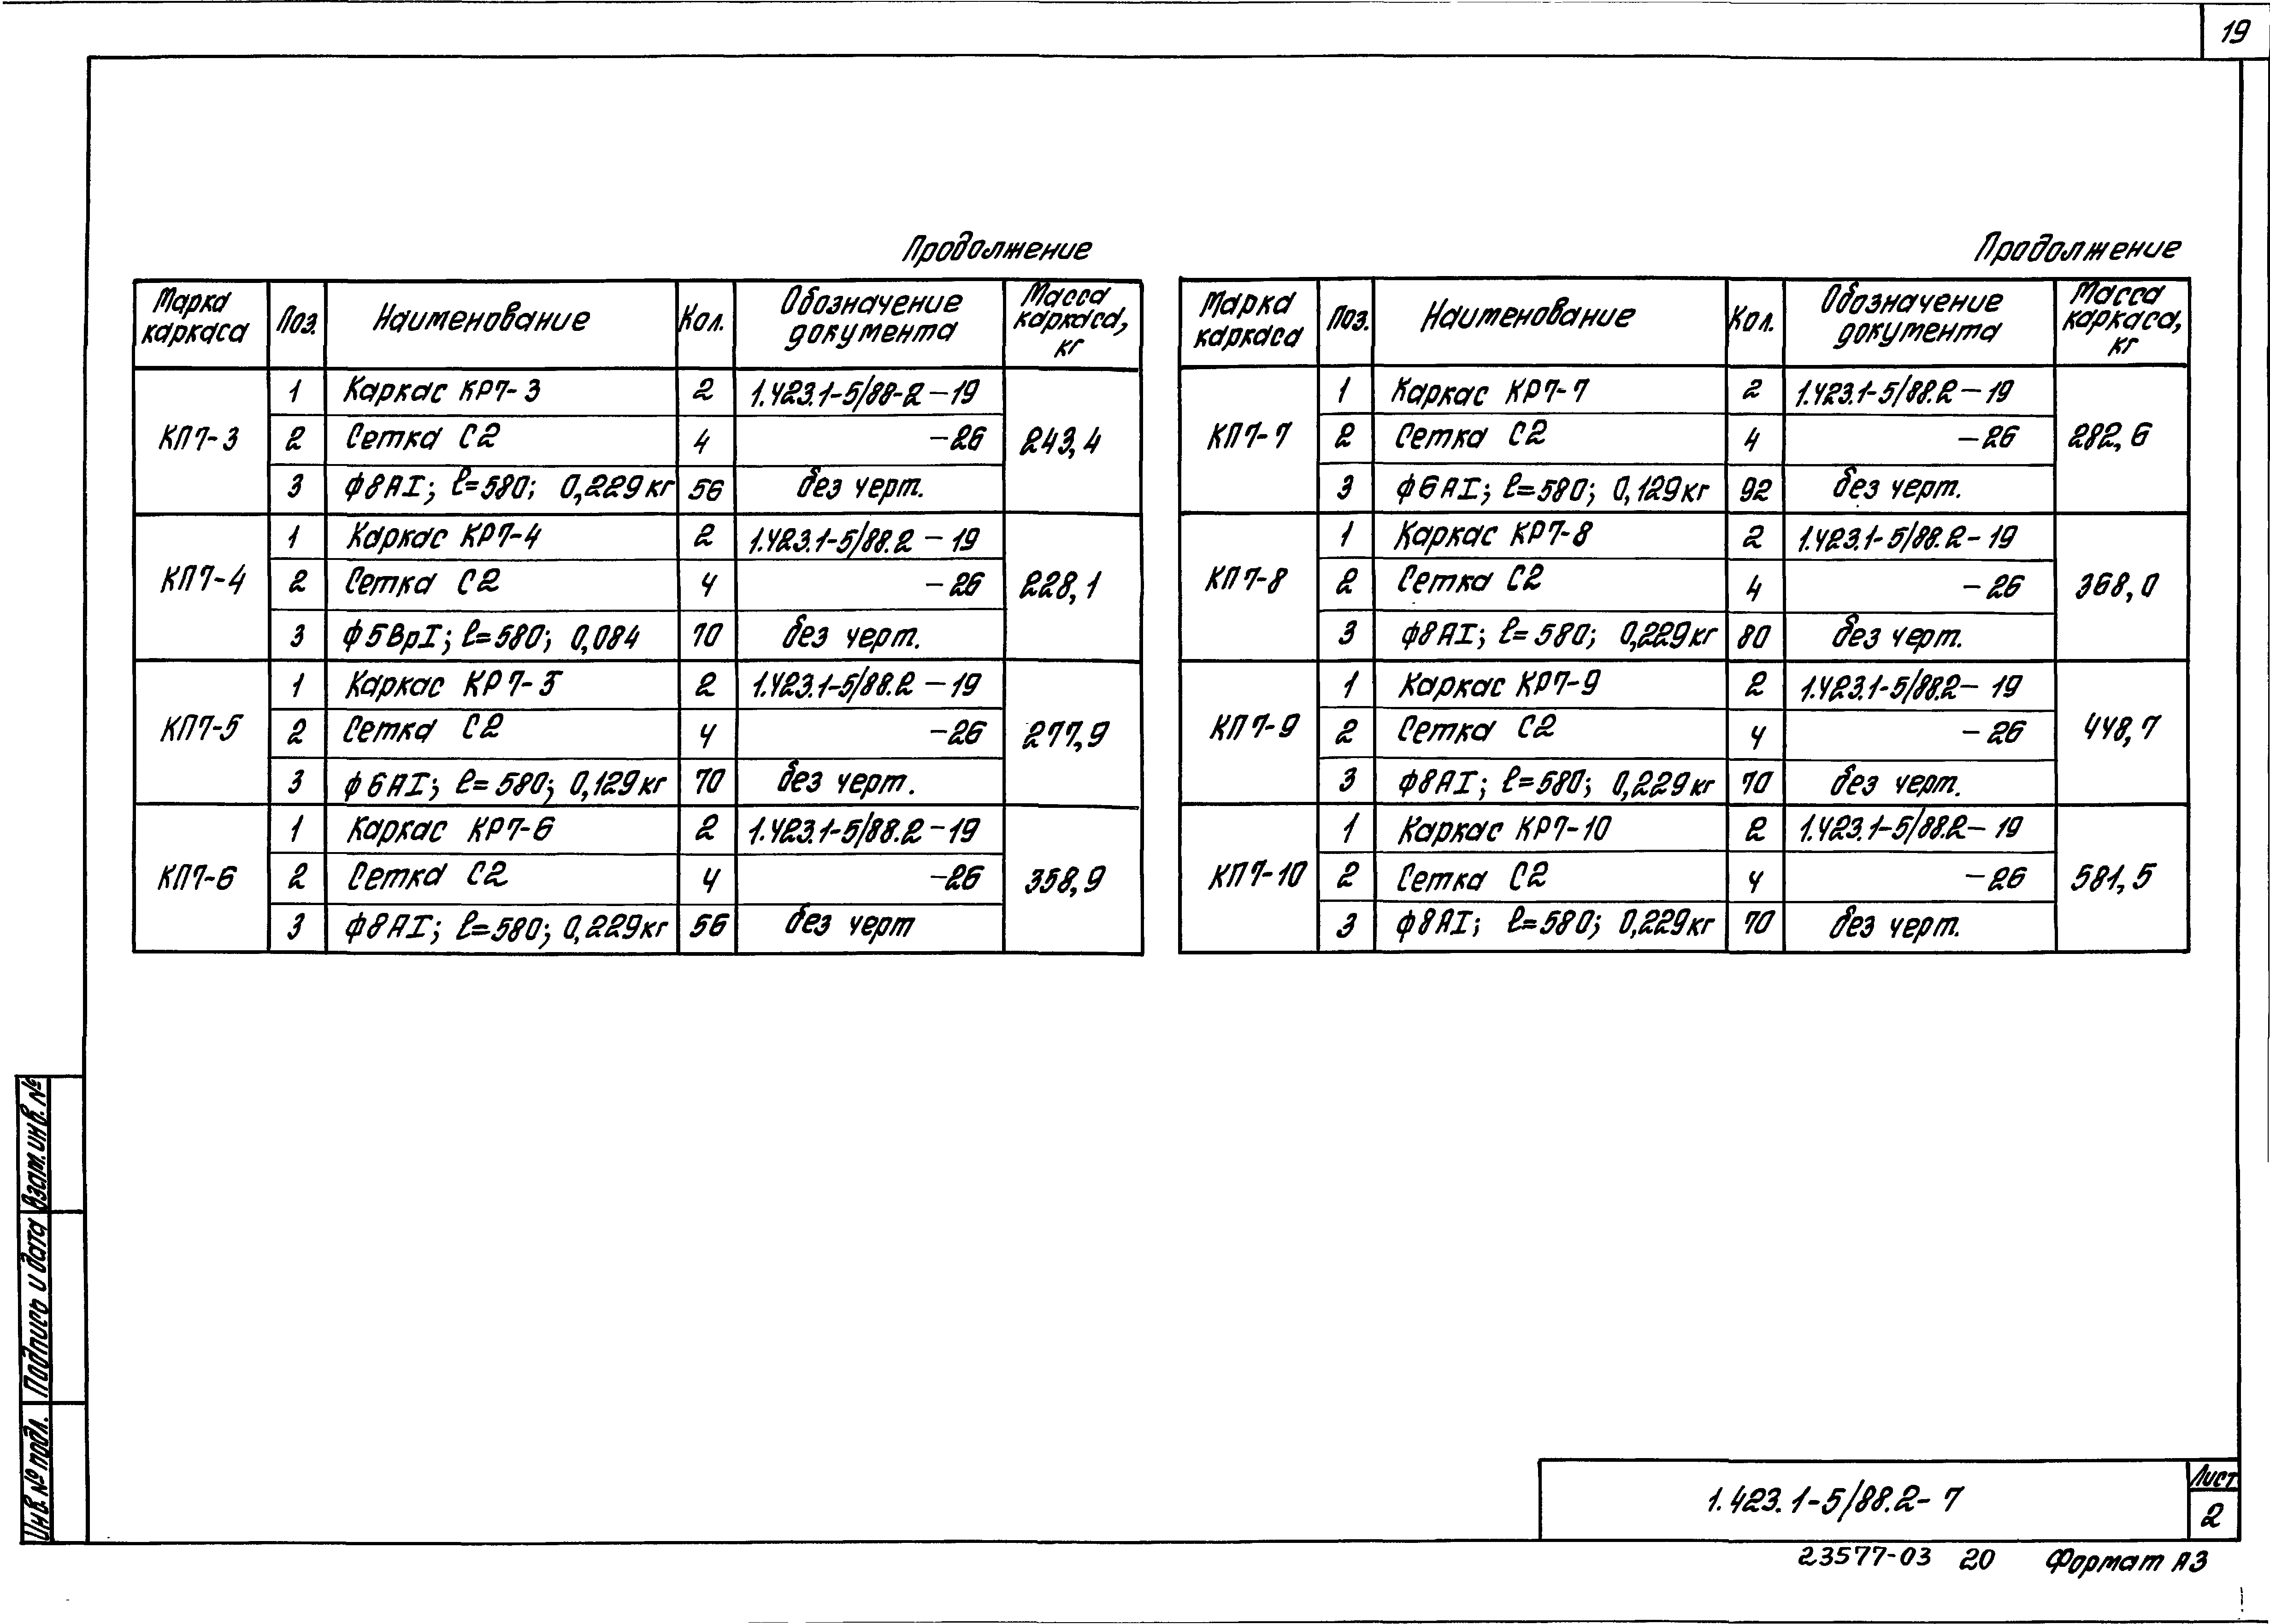 19
Продолжение
Марка каркаса | Поз. | Наименование | Кол. | Обозначение документа | Масса каркаса, кг
КП7-3 | 1 | Каркас КР7-3 | 2 | 1.423.1-5/88-2-19 | 243,4
2 | Сетка С2 | 4 | -26
3 | ф8АI; ℓ=580; 0,229кг | 56 | без черт.
КП7-4 | 1 | Каркас КР7-4 | 2 | 1.423.1-5/88.2-19 | 228,1
2 | Сетка С2 | 4 | -26
3 | ф5ВрI; ℓ=580; 0,084 | 70 | без черт.
КП7-5 | 1 | Каркас КР7-5 | 2 | 1.423.1-5/88.2-19 | 277,9
2 | Сетка С2 | 4 | -26
3 | ф6АI; ℓ=580; 0,129кг | 70 | без черт.
КП7-6 | 1 | Каркас КР7-6 | 2 | 1.423.1-5/88.2-19 | 358,9
2 | Сетка С2 | 4 | -26
3 | ф8АI; ℓ=580; 0,229кг | 56 | без черт
Продолжение
Марка каркаса | Поз. | Наименование | Кол. | Обозначение документа | Масса каркаса, кг
КП7-7 | 1 | Каркас КР7-7 | 2 | 1.423.1-5/88.2-19 | 282,6
2 | Сетка С2 | 4 | -26
3 | ф6АI; ℓ=580; 0,129кг | 92 | без черт.
КП7-8 | 1 | Каркас КР7-8 | 2 | 1.423.1-5/88.2-19 | 368,0
2 | Сетка С2 | 4 | -26
3 | ф8АI; ℓ=580; 0,229кг | 80 | без черт.
КП7-9 | 1 | Каркас КР7-9 | 2 | 1.423.1-5/88.2-19 | 448,7
2 | Сетка С2 | 4 | -26
3 | ф8АI; ℓ=580; 0,229кг | 70 | без черт.
КП7-10 | 1 | Каркас КР7-10 | 2 | 1.423.1-5/88.2-19 | 581,5
2 | Сетка С2 | 4 | -26
3 | ф8АI; ℓ=580; 0,229кг | 70 | без черт.
Взам. инв. №
Подпись и дата
Инв. № подл.
1.423.1-5/88.2-7
Лист
2
23577-03 20 Формат А3